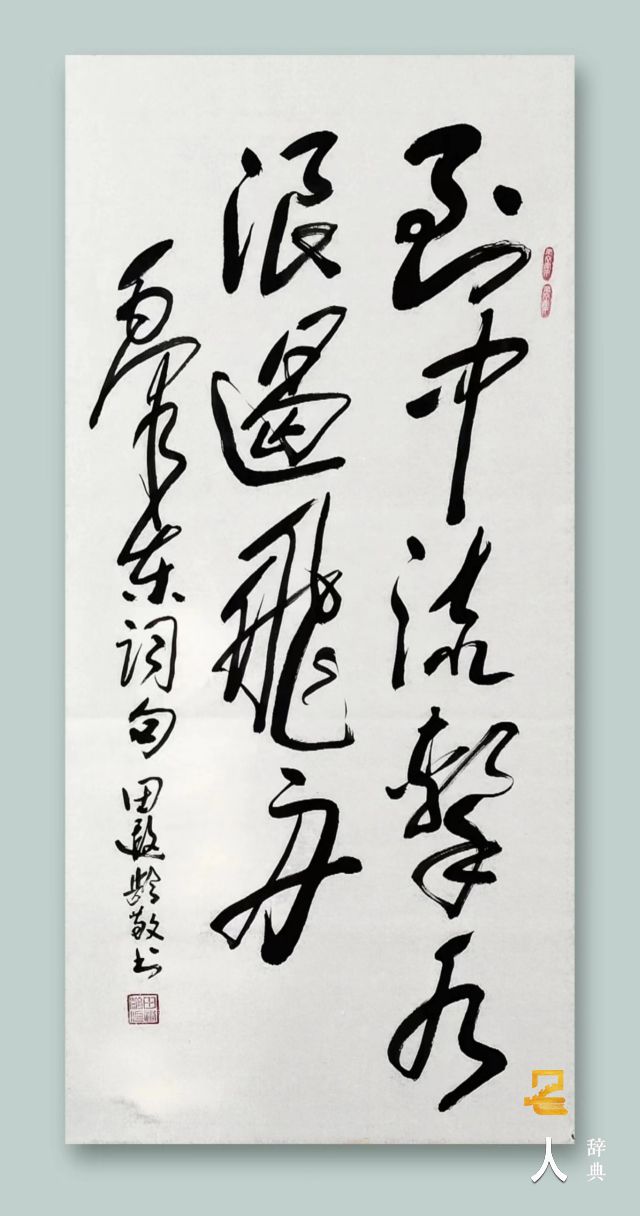 到中流击水
浪遏飞舟
毛泽东词句 田遐龄敬书
名人
辞典